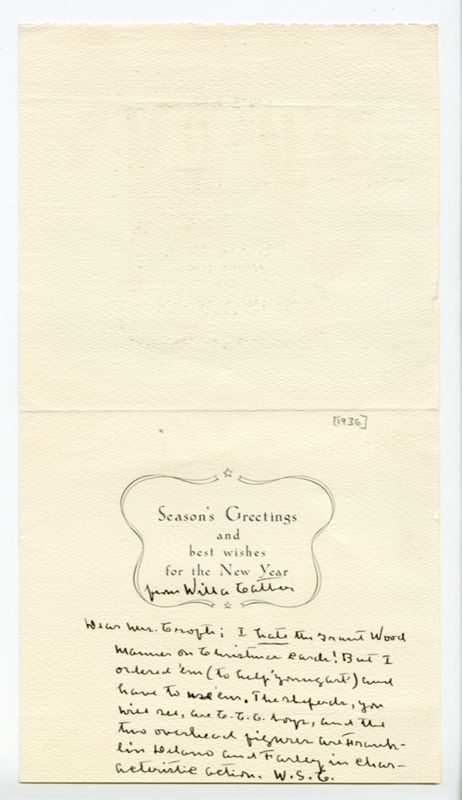 [1936]
Season's Greetings
and
best wishes
for the New Year
from Willa Cather
Dear Mrs. Crofts; I hate the Grant Wood
manner on Christmas cards! But I
ordered 'em (to help 'young art') and
have to use 'em. The sheperds, you
will see, are C.C.C. boys, and the
two overhead figures are Frank-
lin Delano and Farley in char-
acteristic action. W.S.C.